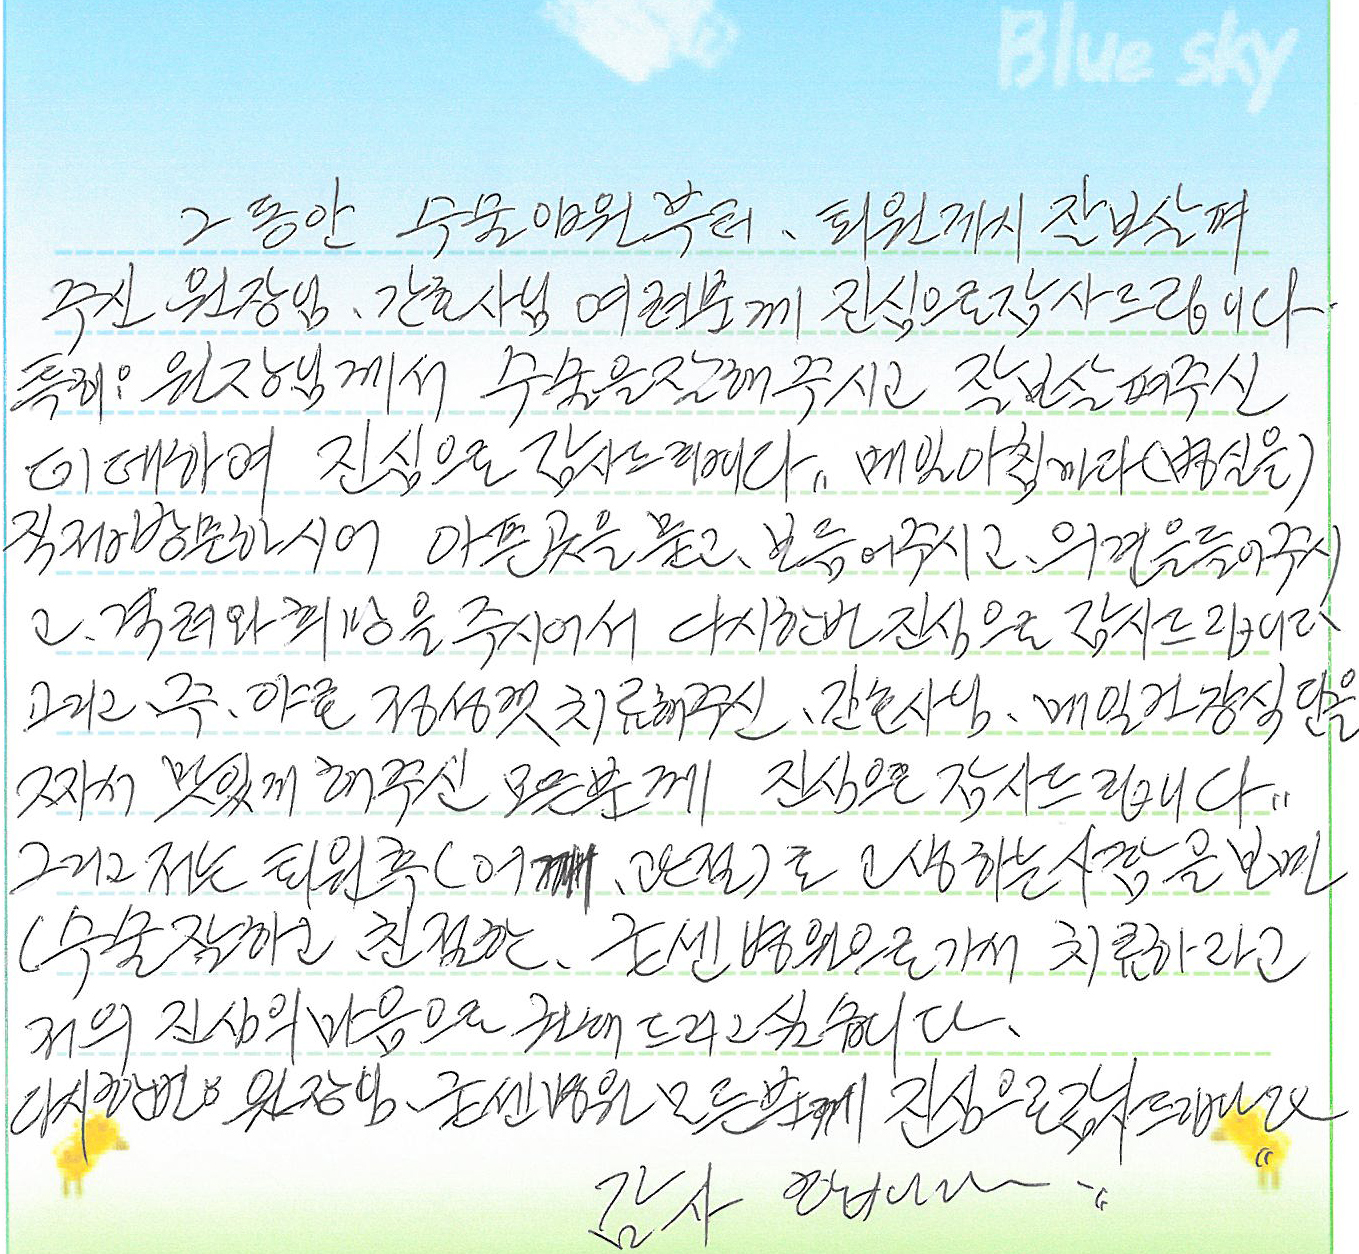 Blue sky
그동안 수술입원부터、퇴원까지 잘보살펴
주신 원장님、간호사님 여러분께 진심으로감사드립니다.
특히: 원장님께서 수술을잘해주시고 잘보살펴주신
데대하여 진심으로 감사드립니다〃 매일아침마다(병실을)
직접방문하시어 아픈곳을 묻고、보듬어주시고、의견을들어주시
고、격려와희망을 주시어서 다시한번 진심으로 감사드립니다
그리고、주、야로 정성껏 치료해주신、간호사님、매일건강식단을
짜서 맛있게 해주신 모든분께 진심으로 감사드립니다〃
그리고 저는 퇴원후(어깨、관절)로 고생하는사람을 보면
(수술잘하고 친절한、굳센병원으로가서 치료하라고
저의 진심의마음으로 권해드리고싶습니다、
다시한번: 원장님、굳센병원 모든분께 진심으로감사드립니다〃
감사 합니다〃